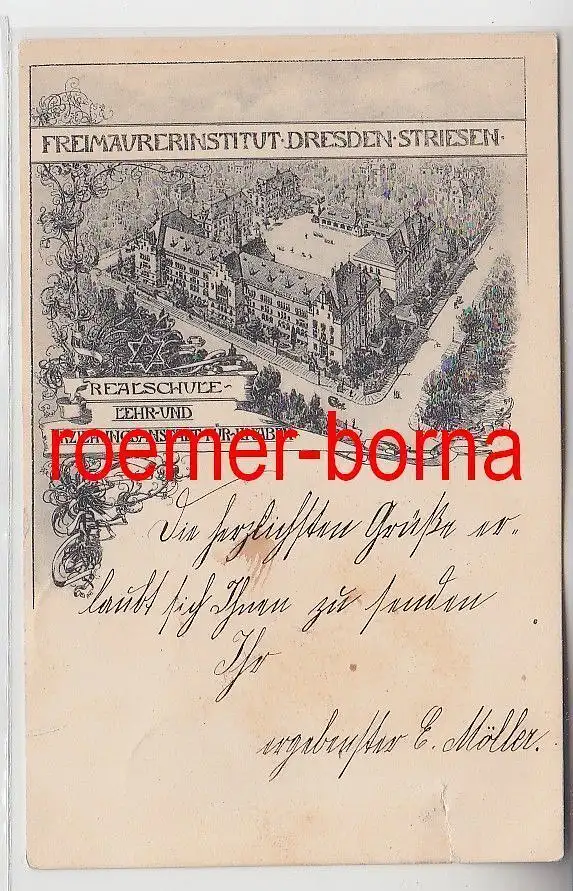 FREIMAURERINSTITUT·DRESDEN·STRIESEN·
REALSCHULE-
LEHR-UND
ERZIEHUNGSANSTALT FÜR KNABEN
roemer-borna
Die herzlichsten Grüße er-
laubt sich Ihnen zu senden
Ihr
ergebenster E. Möller.